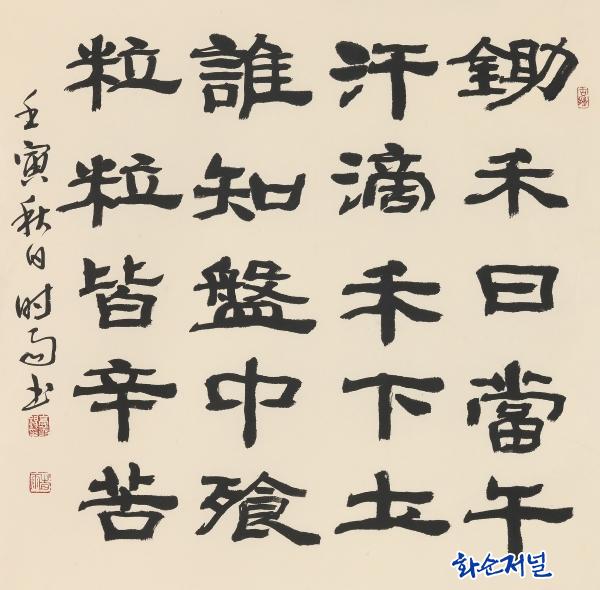 鋤禾日當午
汗滴禾下土
誰知盤中飧
粒粒皆辛苦
壬寅秋日时雨书
화순저널